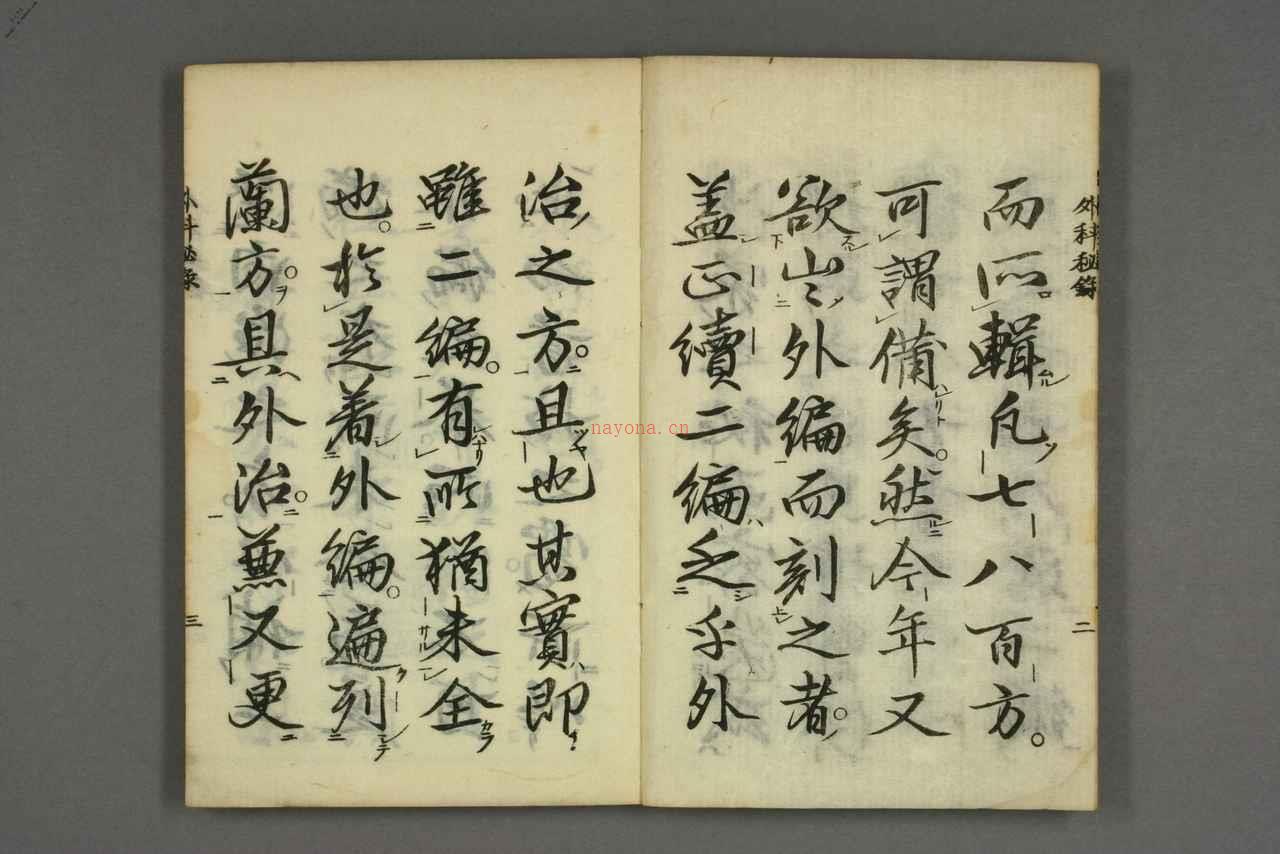 外科秘錄
而所輯凡七八百方。
可謂備矣。然今年又
欲出外編而刻之者。
蓋正續二編乏乎外
二
治之方。且也其實即
雖二編。有所猶未全
也。於是著外編。遍列
蘭方。具外治。兼又更
外科秘录
三
nayona.cn